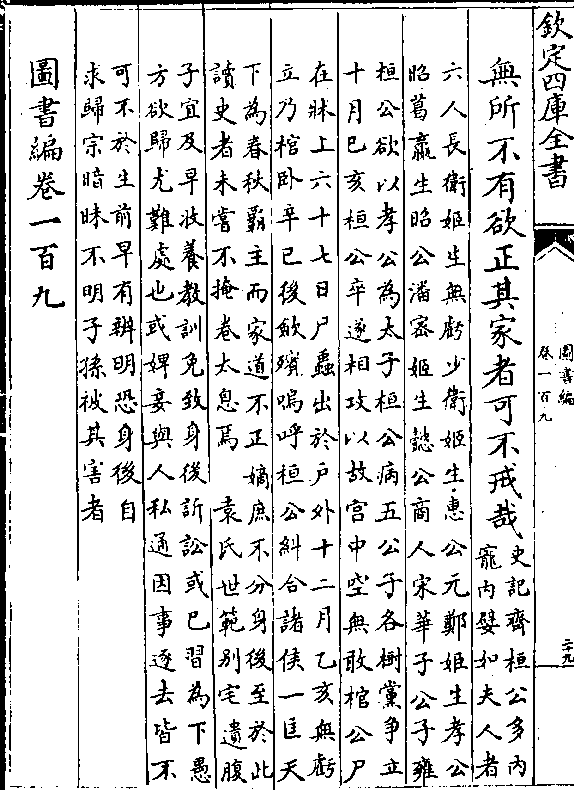 欽定四庫全書
圖書編
卷一百九
二十九
無所不有欲正其家者可不戒哉
史記齊桓公多内
寵内嬖如夫人者
六人長衛姬生無虧少衛姬生惠公元鄭姬生孝公
昭葛嬴生昭公潘宻姬生懿公商人宋華子公子雍
桓公欲以孝公為太子桓公病五公子各樹黨爭立
十月已亥桓公卒遂相攻以故宫中空無敢棺公尸
在牀上六十七日尸蟲出於户外十二月乙亥無虧
立乃棺卧卒已後斂殯嗚呼桓公糾合諸侯一匡天
下為春秋覇主而家道不正嫡庶不分身後至於此
讀史者未嘗不掩卷太息焉　袁氏世範别宅遺腹
子宜及早收養教訓免致身後訴訟或已習為下愚
方欲歸尤難處也或婢妾與人私通因事逐去皆不
可不於生前早有辨明恐身後自
求歸宗暗昧不明子孫被其害者
圖書編卷一百九